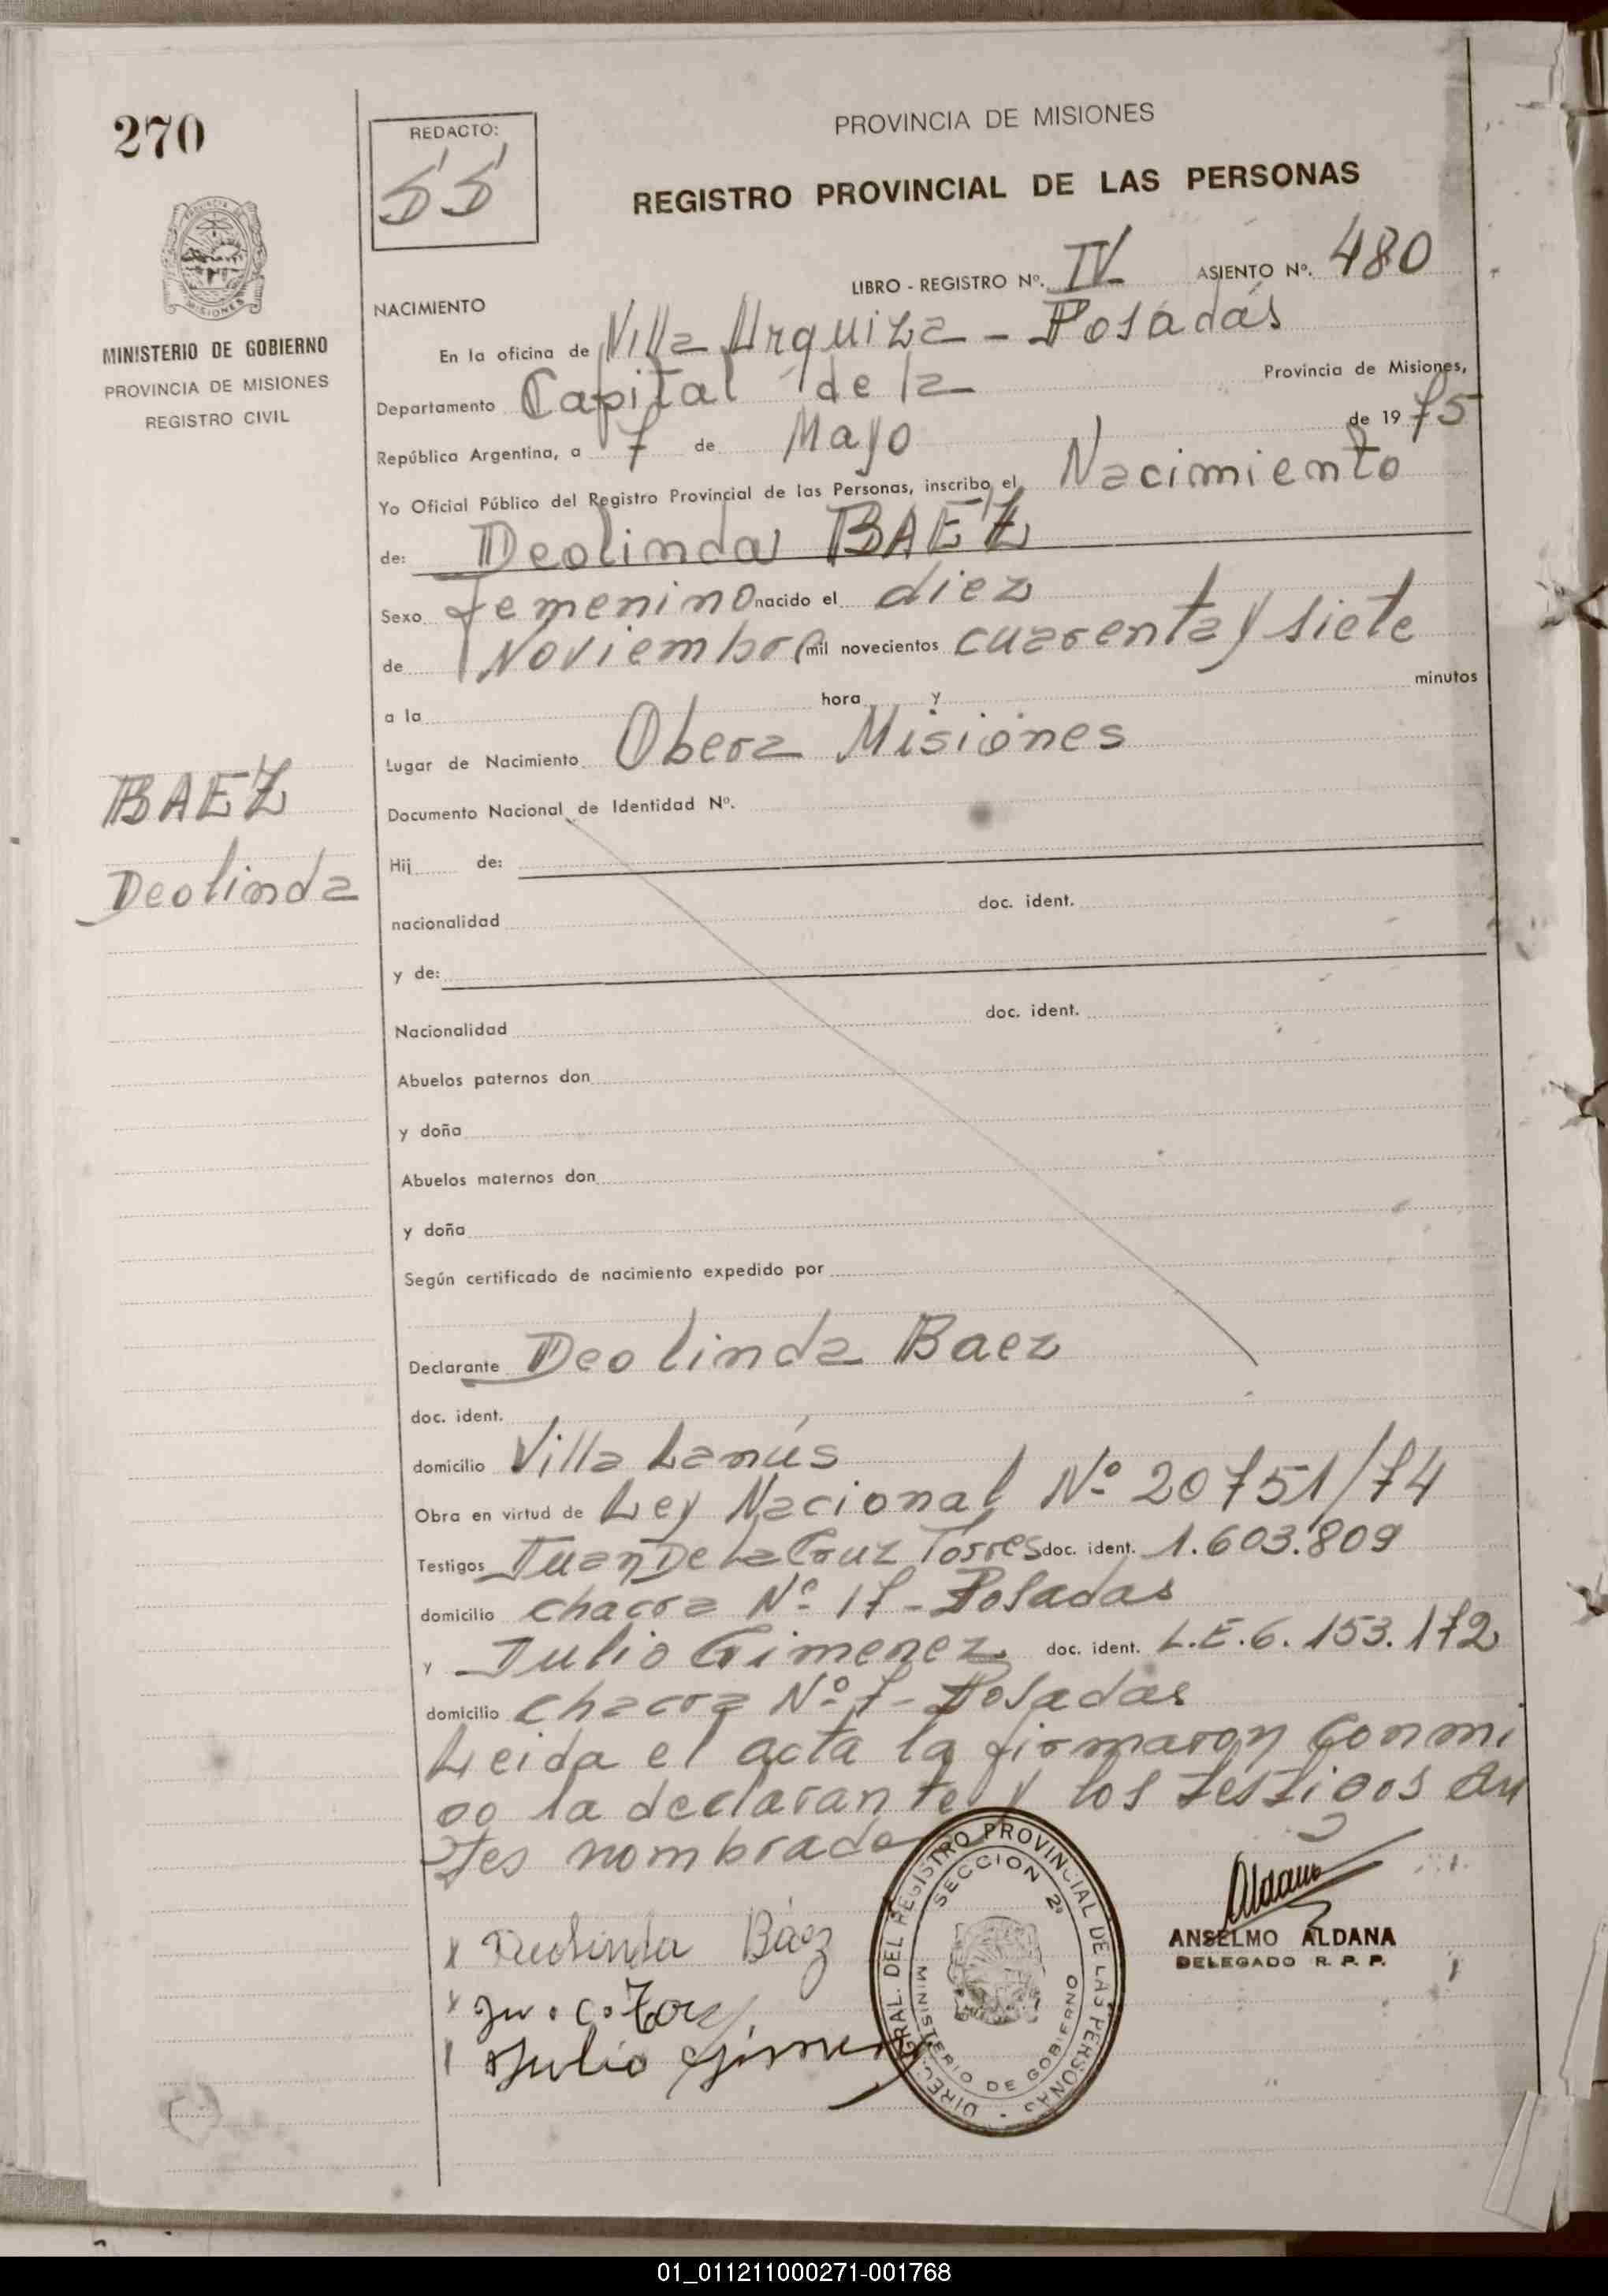 270
REDACTO:
SS
PROVINCIA DE MISIONES
REGISTRO PROVINCIAL DE LAS PERSONAS
PROVINCIA DE
MISIONES
MINISTERIO DE GOBIERNO
PROVINCIA DE MISIONES
REGISTRO CIVIL
LIBRO - REGISTRO Nº. IV ASIENTO Nº. 480
NACIMIENTO
En la oficina de Villa Urquiza - Posadas
Departamento Capital de la Provincia de Misiones,
República Argentina, a 7 de Mayo de 1975
Yo Oficial Público del Registro Provincial de las Personas, inscribo el Nacimiento
de: Deolinda BAEZ
Sexo femenino nacido el diez
de Noviembre mil novecientos cuarenta y siete
a la hora y minutos
Lugar de Nacimiento Obera Misiones
Documento Nacional de Identidad Nº.
BAEZ
Deolinda
Hij de:
nacionalidad doc. ident.
y de:
Nacionalidad doc. ident.
Abuelos paternos don
y doña
Abuelos maternos don
y doña
Según certificado de nacimiento expedido por
Declarante Deolinda Baez
doc. ident.
domicilio Villa Lanús
Obra en virtud de Ley Nacional Nº 20751/74
Testigos Juan De La Cruz Torres doc. ident. 1.603.809
domicilio chacra Nº 17 - Posadas
y Julio Gimenez doc. ident. L.E. 6.153.172
domicilio chacra Nº 7 - Posadas
Leida el acta la firmaron conmi
go la declarante y los testigos an
tes nombrados
x Deolinda Báez
x Ju. C. Torres
x Julio Gimenez
DIREC. GRAL. DEL REGISTRO PROVINCIAL DE LAS PERSONAS
SECCION 2ª
MINISTERIO DE GOBIERNO
Aldana
ANSELMO ALDANA
DELEGADO R. P. P.
01_011211000271-001768